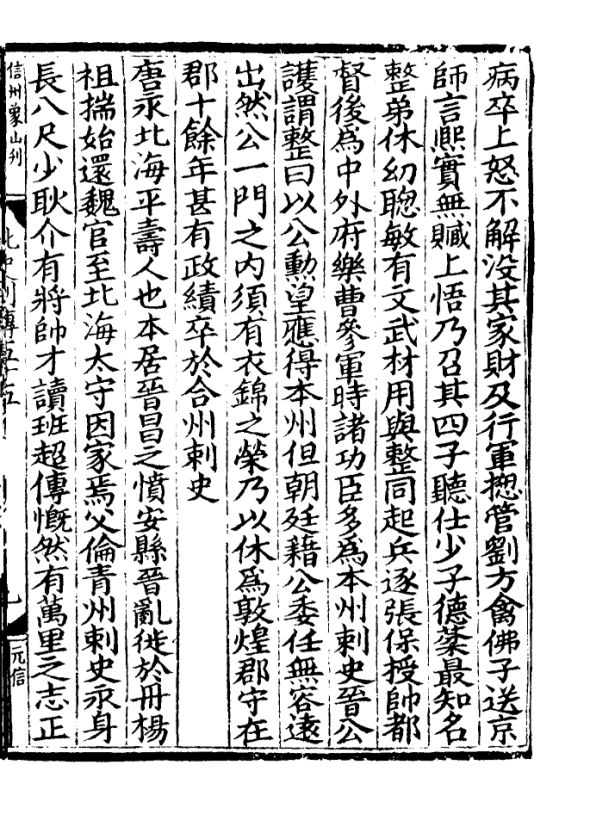 病卒上怒不解没其家財及行軍揔管劉方禽佛子送京
師言熈實無贓上悟乃召其四子聽仕少子德棻最知名
整弟休幼聦敏有文武材用與整同起兵逐張保授帥都
督後爲中外府樂曹參軍時諸功臣多爲本州刺史晉公
護謂整曰以公勲望應得本州但朝廷藉公委任無容遠
出然公一門之内須有衣錦之榮乃以休爲敦煌郡守在
郡十餘年甚有政績卒於合州刺史
唐永北海平壽人也本居晉昌之憤安縣晉亂徙於丹楊
祖揣始還魏官至北海太守因家焉父倫青州刺史永身
長八尺少耿介有將帥才讀班超傳慨然有萬里之志正
信州象山刊
元信